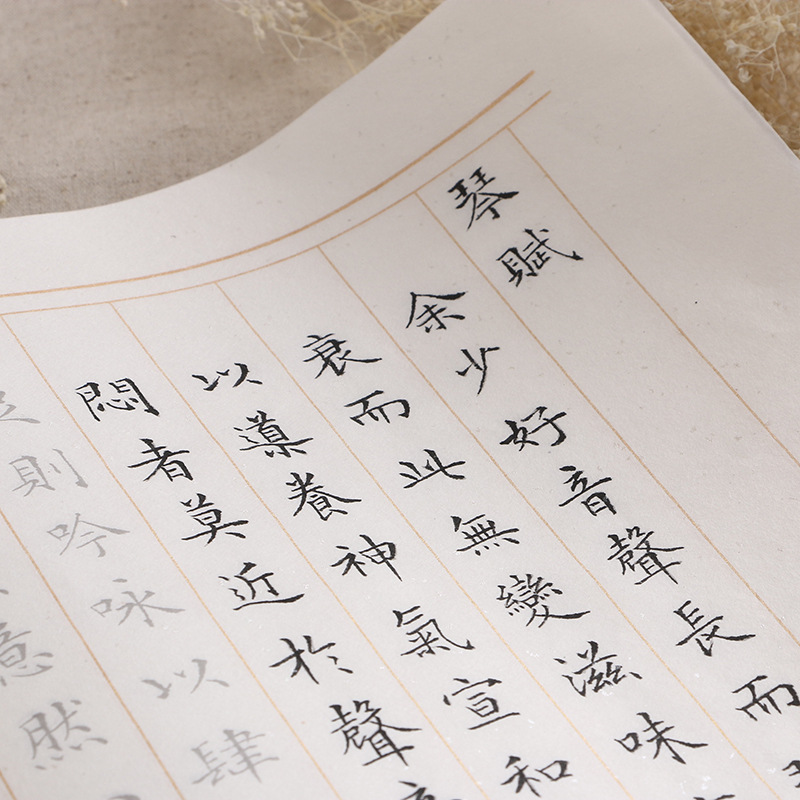 琴賦
余少好音聲長而
衰而此無變滋味
以導養神氣宣和
悶者莫近於聲
則吟咏以肆
意然